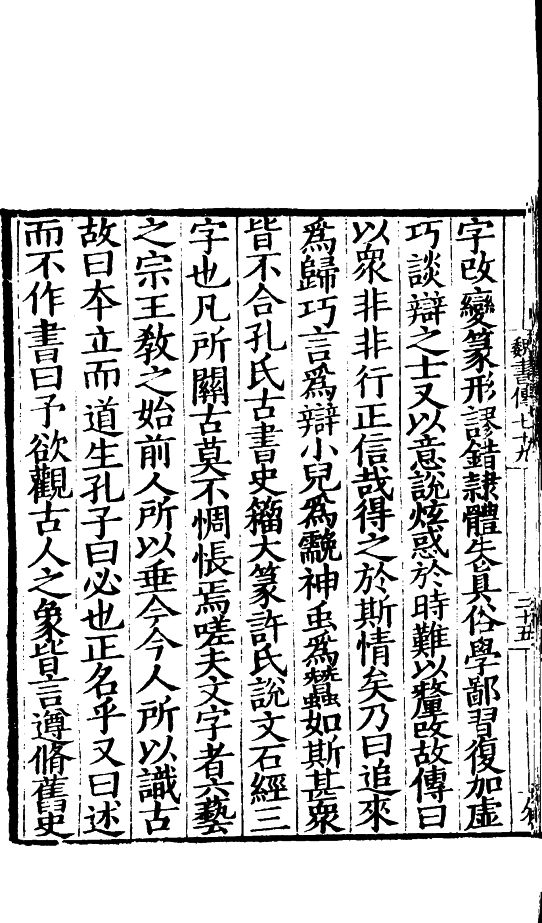 魏書傳七十九
三十五
字改變篆形謬錯隷體失真俗學鄙習復加虛
巧談辯之士又以意說炫惑於時難以釐改故傳曰
以衆非非行正信哉得之於斯情矣乃曰追來
爲歸巧言爲辯小兒爲䨲神虫爲蠶如斯甚衆
皆不合孔氏古書史籀大篆許氏說文石經三
字也凡所關古莫不惆悵焉嗟夫文字者六藝
之宗王教之始前人所以垂今今人所以識古
故曰本立而道生孔子曰必也正名乎又曰述
而不作書曰予欲觀古人之象皆言遵脩舊史